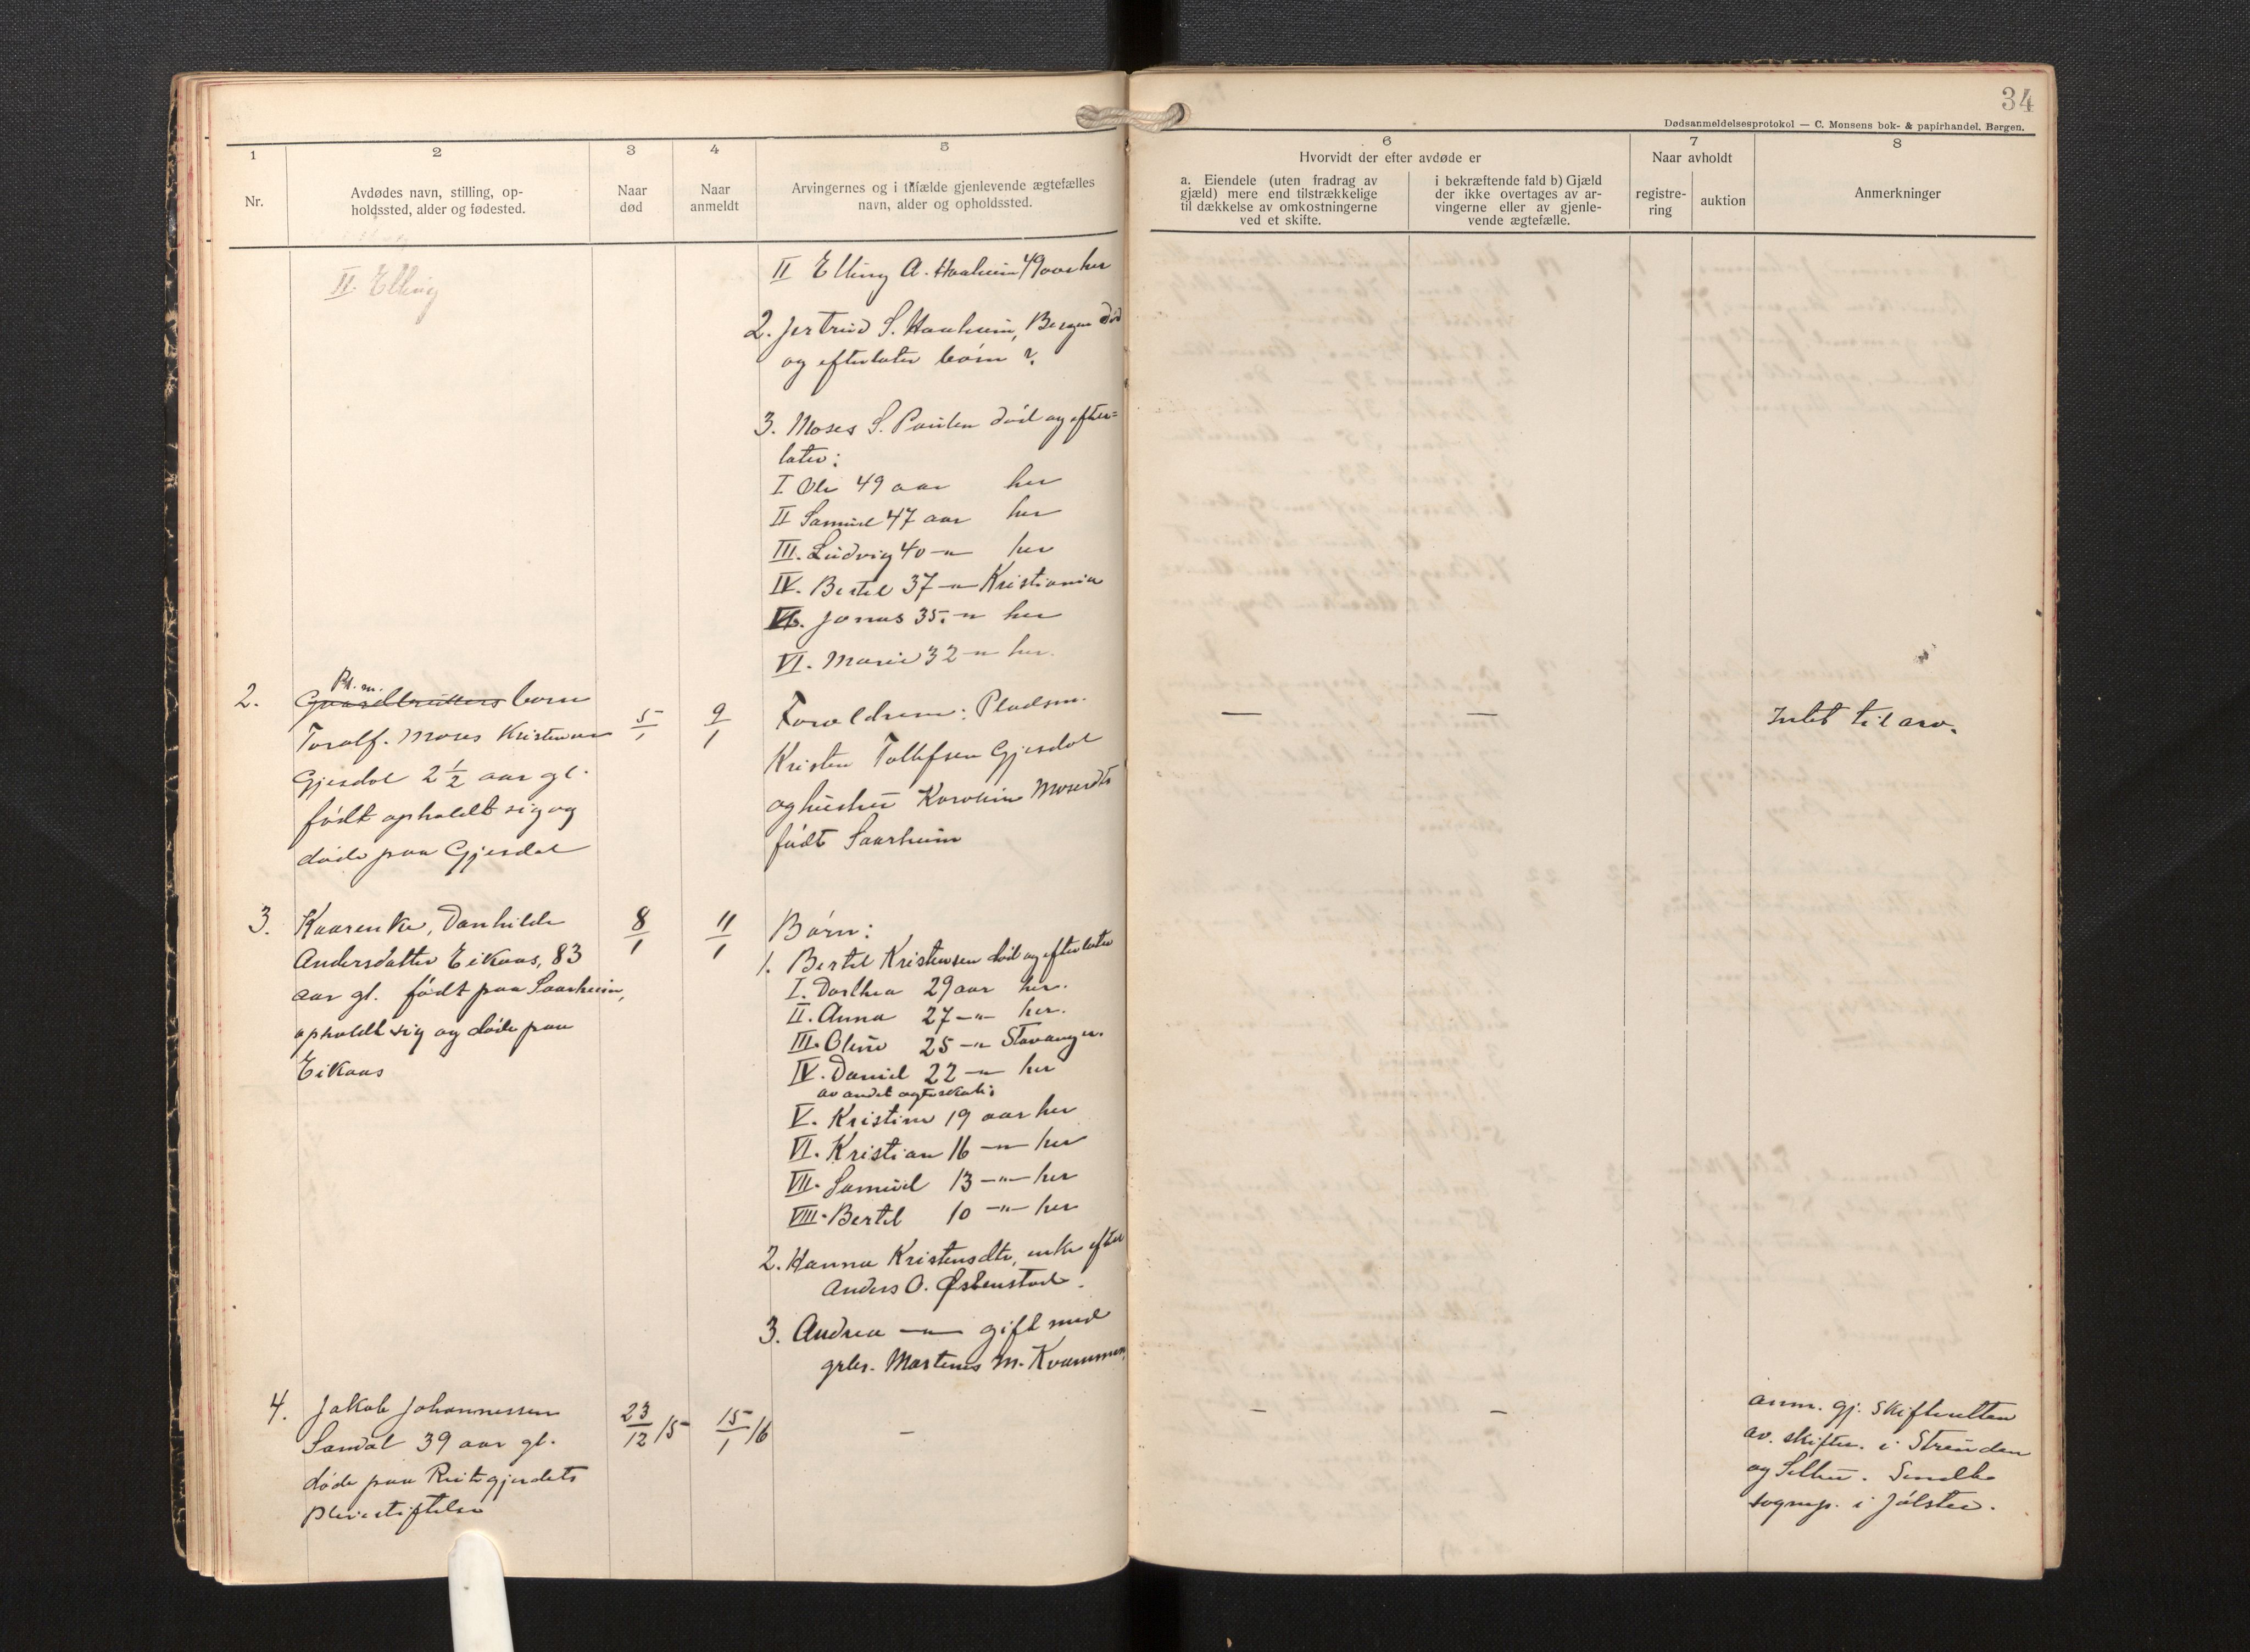 34
Dødsanmeldelsesprotokol — C. Monsens bok- & papirhandel, Bergen.
1
Nr.
2
Avdødes navn, stilling, op-
holdssted, alder og fødested.
3
Naar
død
4
Naar
anmeldt
5
Arvingernes og i tilfælde gjenlevende ægtefælles
navn, alder og opholdssted.
6
Hvorvidt der efter avdøde er
a. Eiendele (uten fradrag av
gjæld) mere end tilstrækkelige
til dækkelse av omkostningerne
ved et skifte.
i bekræftende fald b) Gjæld
der ikke overtages av ar-
vingerne eller av gjenle-
vende ægtefælle.
7
Naar avholdt
registre-
ring
auktion
8
Anmerkninger
II. Elling
II Elling A. Haaheim 49 aar her
2. Jertrud S. Haaheim, Bergen død
og efterlater børn ?
3. Moses S. Paulen død og efter=
later:
I Ole 49 aar her
II Samuel 47 aar her
III. Ludvig 40 -"- her
IV. Bertel 37 -"- Kristiania
V. Jonas 35. -"- her
VI. Marie 32 -"- her.
2.
Pl. m.
Gaardbrukers born
Toralf. Moses Kristensen
Gjesdal 2 1/2 aar gl.
født opholdt sig og
døde paa Gjesdal
5/1
9/1
Foreldrene: Pladsm.
Kristen Tollefsen Gjesdal
og hustru Karoline Mosesdtr
født Saarheim
—
—
Intet til arv.
3.
Kaarenke, Danhilde
Andersdatter Eikaas, 83
aar gl. født paa Saarheim,
opholdt sig og døde paa
Eikaas
8/1
11/1
Børn:
1. Bertel Kristensen død og efterlater
I. Dorthea 29 aar her.
II. Anna 27 -"- her.
III. Oline 25 -"- Stavanger.
IV. Daniel 22 -"- her
av andet ægteskab:
V. Kristine 19 aar her
VI. Kristian 16 -"- her
VII. Samuel 13 -"- her
VIII. Bertel 10 -"- her
2. Hanna Kristensdtr, enke efter
Anders O. Østenstad.
3. Andrea -"- gift med
grbr. Martinus M. Kvammen,
4.
Jakob Johannessen
Sandal 39 aar gl.
døde paa Reitgjerdets
Pleiestiftelse
23/12 15
15/1 16
—
—
—
anm. gj. skifteretten
av. skifter. i Strinden
og Selbu. Sendt
sognep. i Jølster.